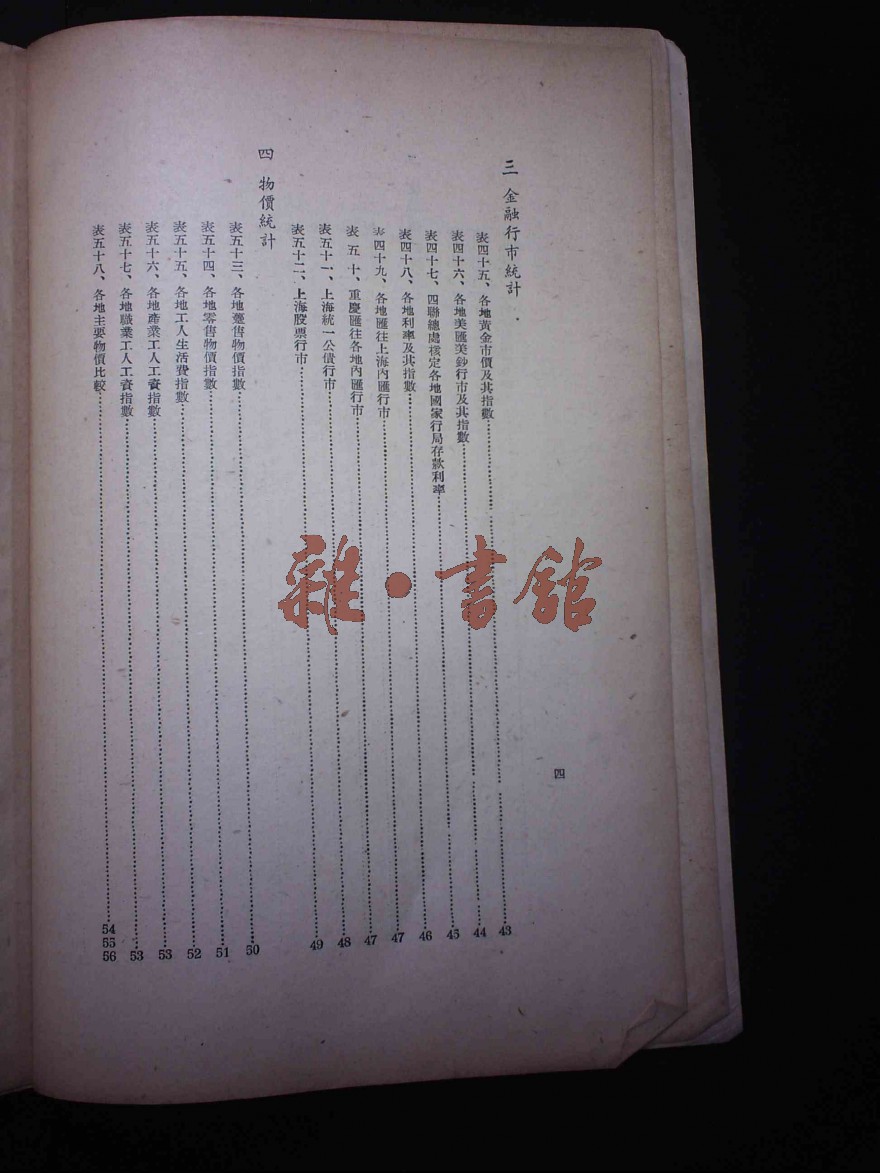 三 金融行市統計
表四十五、各地黃金市價及其指數 43
表四十六、各地美匯美鈔行市及其指數 44
表四十七、四聯總處核定各地國家行局存款利率 45
表四十八、各地利率及其指數 46
表四十九、各地匯往上海內匯行市 47
表 五 十、重慶匯往各地內匯行市 47
表五十一、上海統一公債行市 48
表五十二、上海股票行市 49
四 物價統計
表五十三、各地躉售物價指數 50
表五十四、各地零售物價指數 51
表五十五、各地工人生活費指數 52
表五十六、各地產業工人工資指數 53
表五十七、各地職業工人工資指數 53
表五十八、各地主要物價比較 54 55 56
四
雜·書館